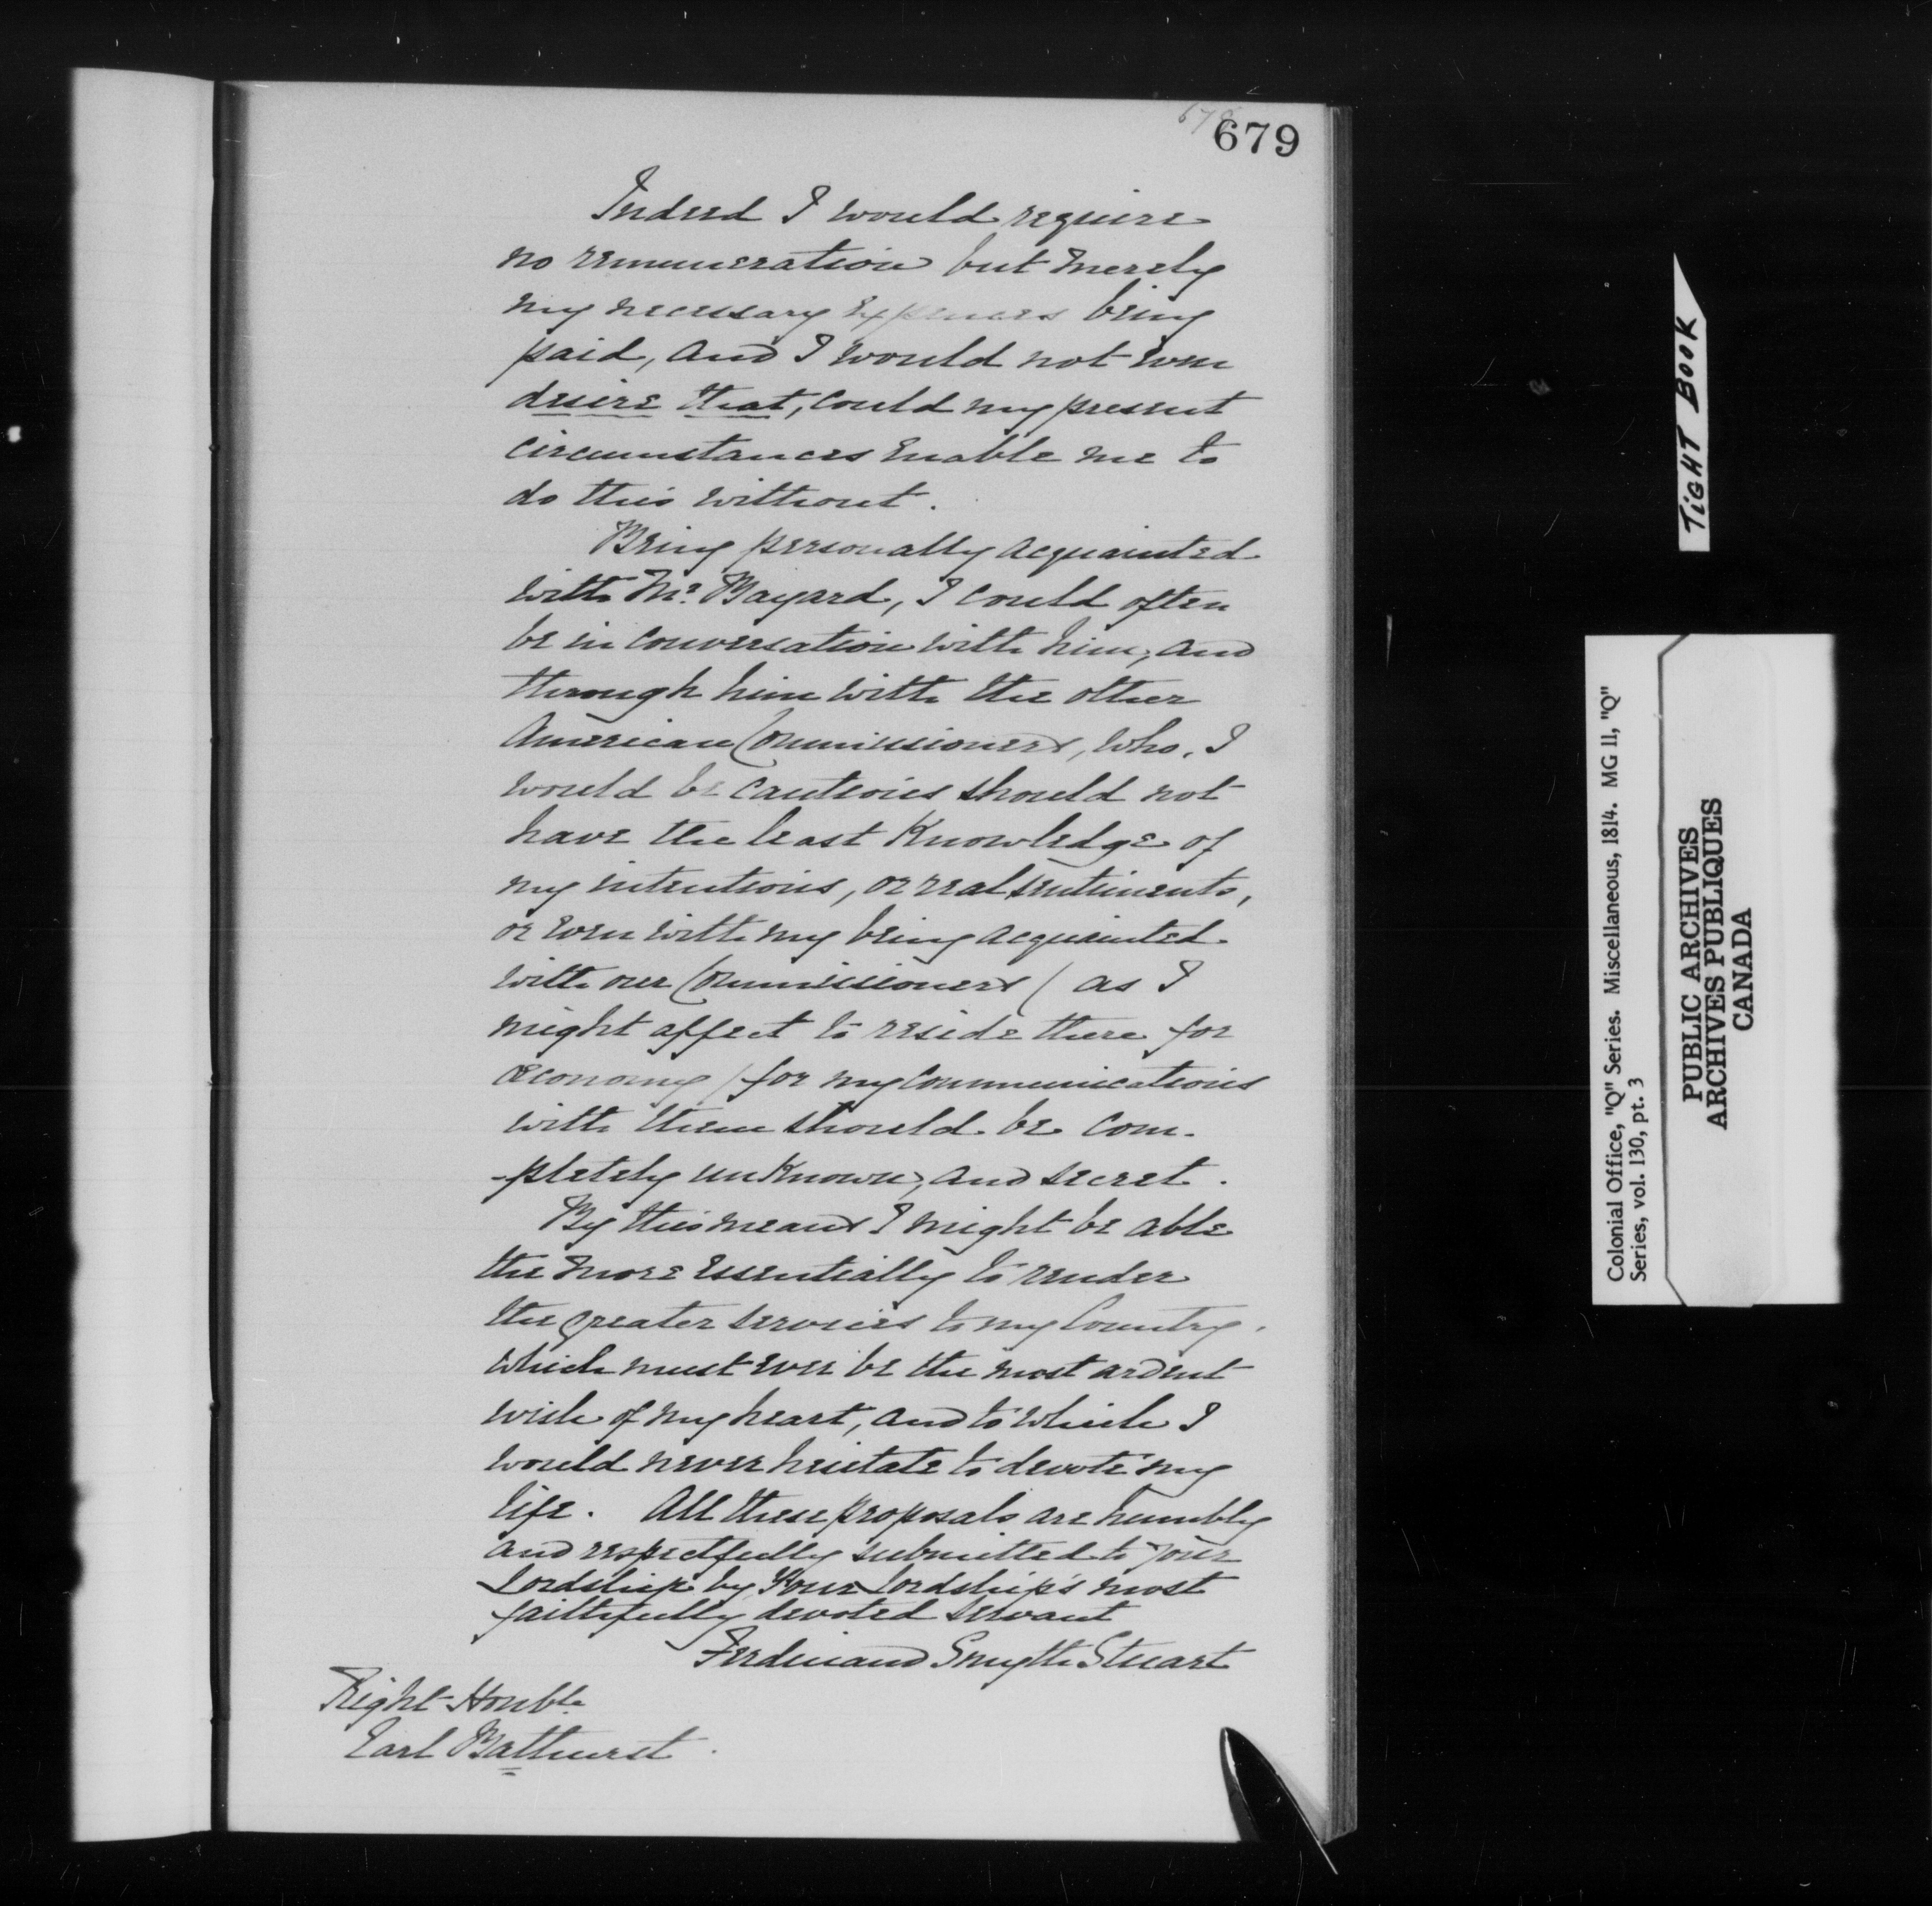 678
679
Indeed I would require
no remuneration but merely
my necessary expences being
paid, and I would not even
desire that, could my present
circumstances enable me to
do this without.
Being personally acquainted
with Mr. Bayard, I could often
be in conversation with him, and
through him with the other
American Commissioners, who, I
would be cautious should not
have the least Knowledge of
my intentions, or real sentiments,
or even with my being acquainted
with our Commissioners (as I
might affect to reside there for
œconomy) for my communications
with them should be com-
-pletely unKnown, and secret.
By this means I might be able
the more essentially to render
the greater services to my Country,
which must ever be the most ardent
wish of my heart, and to which I
would never hesitate to devote my
life. All these proposals are humbly
and respectfully submitted to your
Lordship by Your Lordship's most
faithfully devoted servant
Ferdinand Smyth Stuart
Right Honble.
Earl Bathurst.
TIGHT BOOK
Colonial Office, "Q" Series. Miscellaneous, 1814. MG 11, "Q"
Series, vol. 130, pt. 3
PUBLIC ARCHIVES
ARCHIVES PUBLIQUES
CANADA